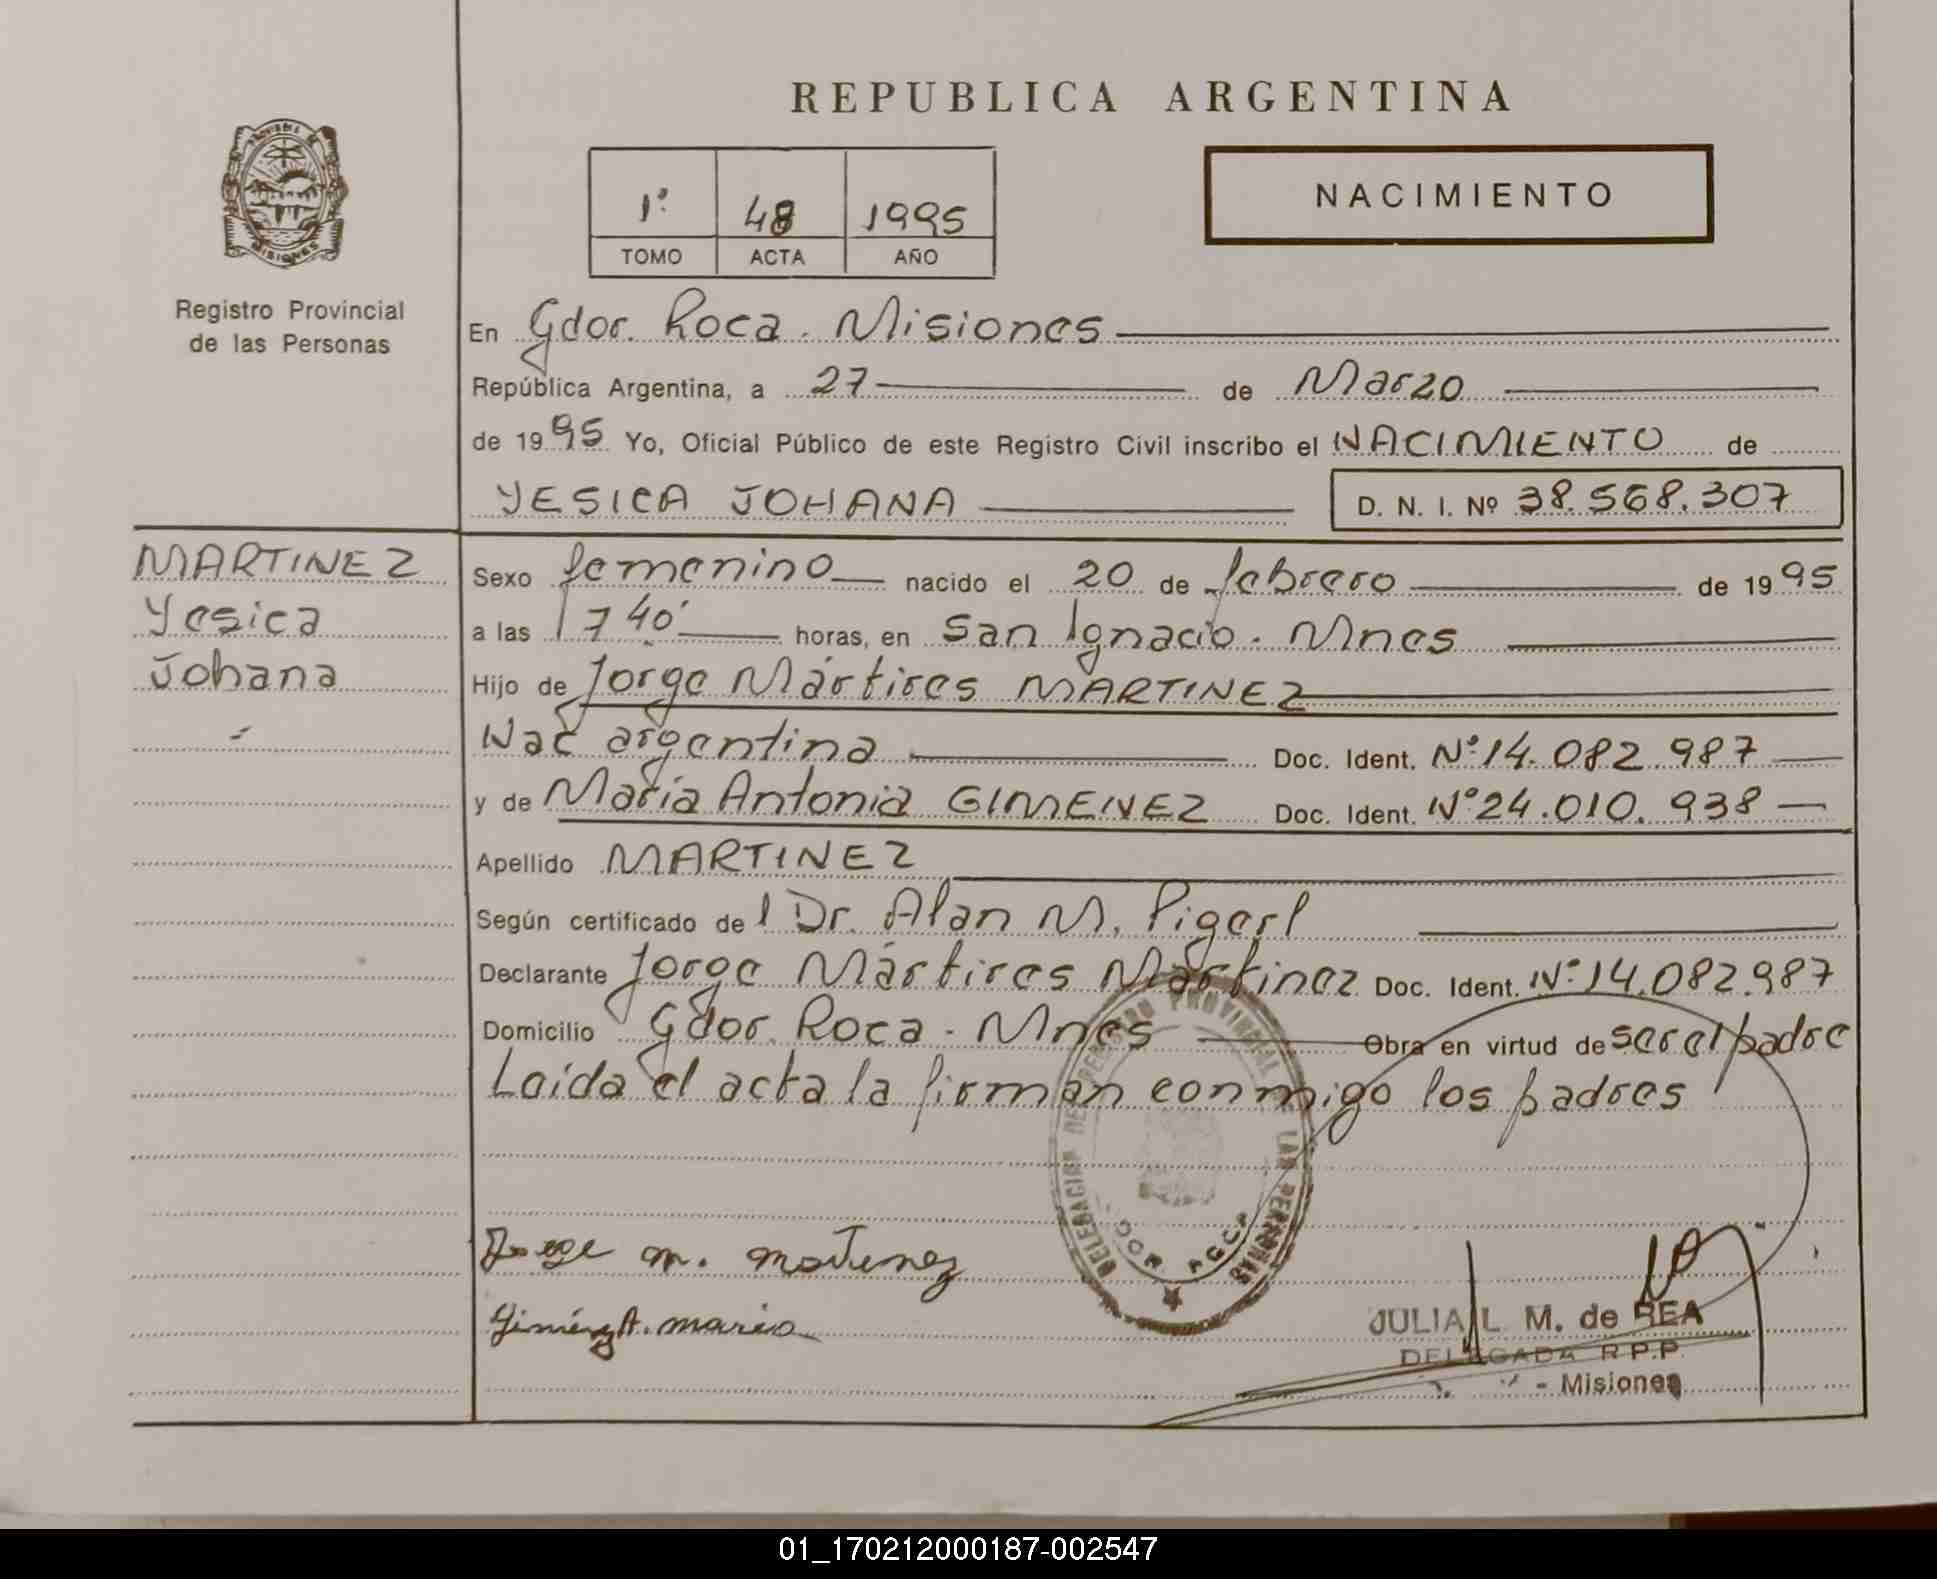 REPUBLICA ARGENTINA
NACIMIENTO
1º 48 1995
TOMO ACTA AÑO
MISIONES
Registro Provincial
de las Personas
En Gdor. Roca. Misiones
República Argentina, a 27 de Marzo
de 1995 Yo, Oficial Público de este Registro Civil inscribo el NACIMIENTO de
YESICA JOHANA D. N. I. Nº 38.568.307
MARTINEZ
Yesica
Johana
Sexo femenino nacido el 20 de febrero de 1995
a las 17 40' horas, en San Ignacio. Mnes
Hijo de Jorge Mártires MARTINEZ
Nac argentina Doc. Ident. Nº 14.082.987
y de María Antonia GIMENEZ Doc. Ident. Nº 24.010.938
Apellido MARTINEZ
Según certificado del Dr. Alan M. Pigerl
Declarante Jorge Mártires Martinez Doc. Ident. Nº 14.082.987
Domicilio Gdor. Roca - Mnes Obra en virtud de ser el padre
Leída el acta la firman conmigo los padres
DELEGACION DEL REGISTRO PROVINCIAL DE LAS PERSONAS
GDOR. ROCA
Jorge m. martinez
Giménez A. maria
JULIA L M. de REA
DELEGADA R.P.P.
- Misiones
01_170212000187-002547